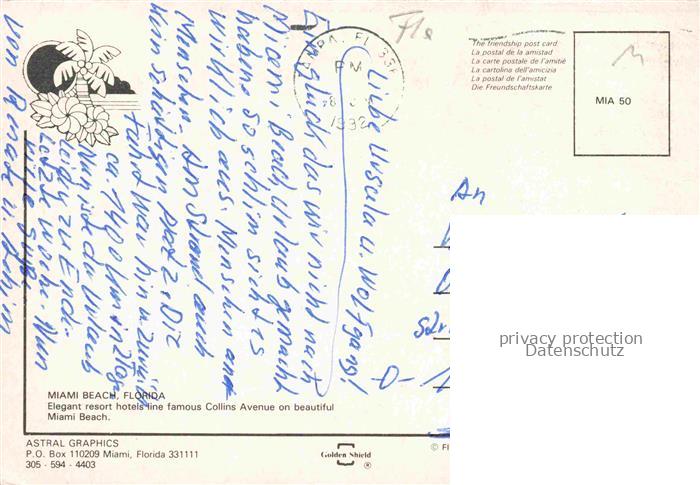 Fla
TAMPA, FL 335
PM
1992
The friendship post card
La postal de la amistad
La carte postale de l'amitié
La cartolina dell'amicizia
La postal de l'amistat
Die Freundschaftskarte
MIA 50
Liebe Ursula u. Wolfgang!
Glück das wir nicht nach
Miami Beach, Urlaub gemacht
haben. So schlim sieht es
wirklich aus. Menschen and
Menschen. Am Strand auch
kein schattigen Platz. Die
Fahrt war hin u zurück
ca 1400 km in 2 Tag
Nun ist der Urlaub
leidr zu Ende.
letzte Woche. Nun
von Renate u.
An
D-
privacy protection
Datenschutz
MIAMI BEACH, FLORIDA
Elegant resort hotels line famous Collins Avenue on beautiful
Miami Beach.
ASTRAL GRAPHICS
P.O. Box 110209 Miami, Florida 331111
305 - 594 - 4403
Golden Shield
®
© Fl